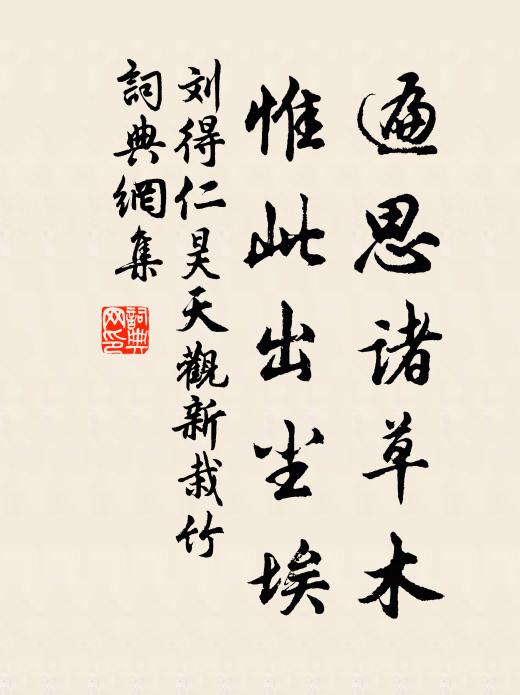 遍思诸草木
惟此出尘埃
刘得仁昊天觀新栽竹
詞典網集
詞典网印